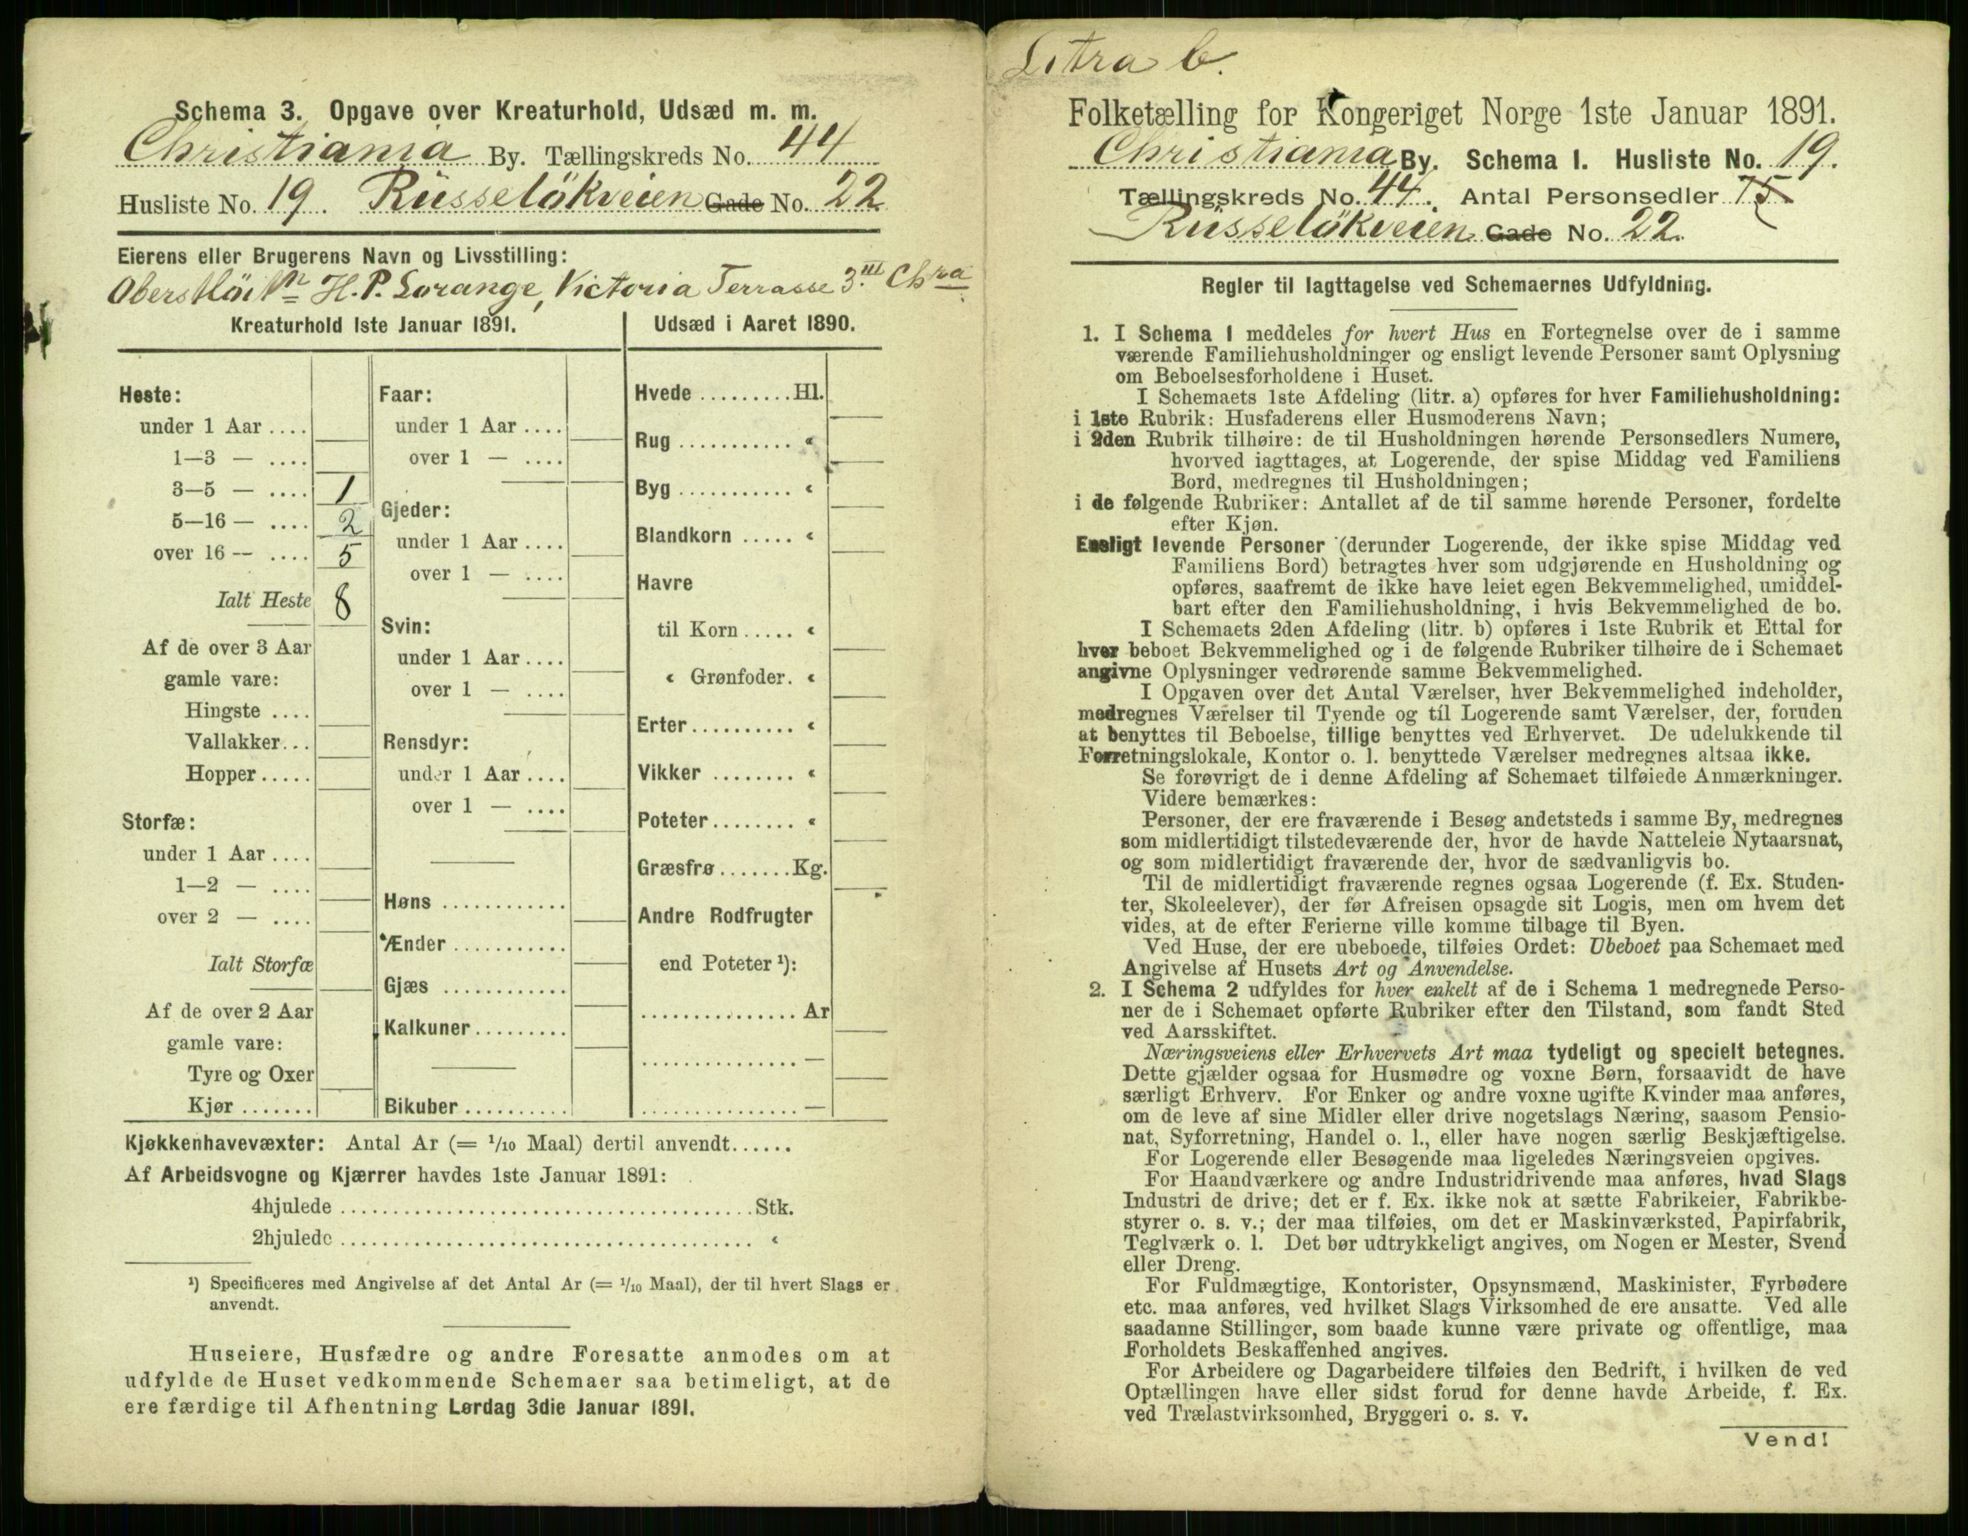 Schema 3. Opgave over Kreaturhold, Udsæd m. m.
Christiania By. Tællingskreds No. 44
Husliste No. 19. Rüsseløkveien Gade No. 22
Eierens eller Brugerens Navn og Livsstilling:
Oberstløitn H. P. Lorange, Victoria Terrasse 3.III Chra
Kreaturhold 1ste Januar 1891.
Heste:
under 1 Aar ....
1—3 — ....
3—5 — .... 1
5—16 — .... 2
over 16 — .... 5
Ialt Heste 8
Af de over 3 Aar
gamle vare:
Hingste ....
Vallakker...
Hopper.....
Storfæ:
under 1 Aar ....
1—2 — ....
over 2 — ....
Ialt Storfæ
Af de over 2 Aar
gamle vare:
Tyre og Oxer
Kjør .......
Faar:
under 1 Aar ....
over 1 — ....
Gjeder:
under 1 Aar ....
over 1 — ....
Svin:
under 1 Aar ....
over 1 — ....
Rensdyr:
under 1 Aar ....
over 1 — ....
Høns ............
Ænder ...........
Gjæs ............
Kalkuner.........
Bikuber..........
Udsæd i Aaret 1890.
Hvede .........Hl.
Rug ........... «
Byg ........... «
Blandkorn ..... «
Havre
til Korn ..... «
« Grønfoder. «
Erter .......... «
Vikker ......... «
Poteter ........ «
Græsfrø.......Kg.
Andre Rodfrugter
end Poteter ¹):
............... Ar
............... —
............... —
Kjøkkenhavevæxter: Antal Ar (= 1/10 Maal) dertil anvendt......
Af Arbeidsvogne og Kjærrer havdes 1ste Januar 1891:
4hjulede ........................................Stk.
2hjulede ........................................ «
¹) Specificeres med Angivelse af det Antal Ar (= 1/10 Maal), der til hvert Slags er
anvendt.
Huseiere, Husfædre og andre Foresatte anmodes om at
udfylde de Huset vedkommende Schemaer saa betimeligt, at de
ere færdige til Afhentning Lørdag 3die Januar 1891.
Litra b.
Folketælling for Kongeriget Norge 1ste Januar 1891.
Christiania By. Schema 1. Husliste No. 19.
Tællingskreds No. 44. Antal Personsedler 75
Rüsseløkveien Gade No. 22.
Regler til Iagttagelse ved Schemaernes Udfyldning.
1. I Schema 1 meddeles for hvert Hus en Fortegnelse over de i samme
værende Familiehusholdninger og ensligt levende Personer samt Oplysning
om Beboelsesforholdene i Huset.
I Schemaets 1ste Afdeling (litr. a) opføres for hver Familiehusholdning:
i 1ste Rubrik: Husfaderens eller Husmoderens Navn;
i 2den Rubrik tilhøire: de til Husholdningen hørende Personsedlers Numere,
hvorved iagttages, at Logerende, der spise Middag ved Familiens
Bord, medregnes til Husholdningen;
i de følgende Rubriker: Antallet af de til samme hørende Personer, fordelte
efter Kjøn.
Ensligt levende Personer (derunder Logerende, der ikke spise Middag ved
Familiens Bord) betragtes hver som udgjørende en Husholdning og
opføres, saafremt de ikke have leiet egen Bekvemmelighed, umiddel-
bart efter den Familiehusholdning, i hvis Bekvemmelighed de bo.
I Schemaets 2den Afdeling (litr. b) opføres i 1ste Rubrik et Ettal for
hver beboet Bekvemmelighed og i de følgende Rubriker tilhøire de i Schemaet
angivne Oplysninger vedrørende samme Bekvemmelighed.
I Opgaven over det Antal Værelser, hver Bekvemmelighed indeholder,
medregnes Værelser til Tyende og til Logerende samt Værelser, der, foruden
at benyttes til Beboelse, tillige benyttes ved Erhvervet. De udelukkende til
Forretningslokale, Kontor o. l. benyttede Værelser medregnes altsaa ikke.
Se forøvrigt de i denne Afdeling af Schemaet tilføiede Anmærkninger.
Videre bemærkes:
Personer, der ere fraværende i Besøg andetsteds i samme By, medregnes
som midlertidigt tilstedeværende der, hvor de havde Natteleie Nytaarsnat,
og som midlertidigt fraværende der, hvor de sædvanligvis bo.
Til de midlertidigt fraværende regnes ogsaa Logerende (f. Ex. Studen-
ter, Skoleelever), der før Afreisen opsagde sit Logis, men om hvem det
vides, at de efter Ferierne ville komme tilbage til Byen.
Ved Huse, der ere ubeboede, tilføies Ordet: Ubeboet paa Schemaet med
Angivelse af Husets Art og Anvendelse.
2. I Schema 2 udfyldes for hver enkelt af de i Schema 1 medregnede Perso-
ner de i Schemaet opførte Rubriker efter den Tilstand, som fandt Sted
ved Aarsskiftet.
Næringsveiens eller Erhvervets Art maa tydeligt og specielt betegnes.
Dette gjælder ogsaa for Husmødre og voxne Børn, forsaavidt de have
særligt Erhverv. For Enker og andre voxne ugifte Kvinder maa anføres,
om de leve af sine Midler eller drive nogetslags Næring, saasom Pensio-
nat, Syforretning, Handel o. l., eller have nogen særlig Beskjæftigelse.
For Logerende eller Besøgende maa ligeledes Næringsveien opgives.
For Haandværkere og andre Industridrivende maa anføres, hvad Slags
Industri de drive; det er f. Ex. ikke nok at sætte Fabrikeier, Fabrikbe-
styrer o. s. v.; der maa tilføies, om det er Maskinværksted, Papirfabrik,
Teglværk o. l. Det bør udtrykkeligt angives, om Nogen er Mester, Svend
eller Dreng.
For Fuldmægtige, Kontorister, Opsynsmænd, Maskinister, Fyrbødere
etc. maa anføres, ved hvilket Slags Virksomhed de ere ansatte. Ved alle
saadanne Stillinger, som baade kunne være private og offentlige, maa
Forholdets Beskaffenhed angives.
For Arbeidere og Dagarbeidere tilføies den Bedrift, i hvilken de ved
Optællingen have eller sidst forud for denne havde Arbeide, f. Ex.
ved Trælastvirksomhed, Bryggeri o. s. v.
Vend!